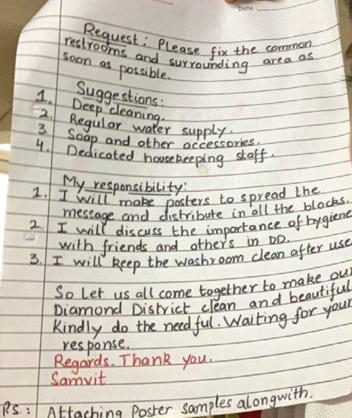 Date
Request: Please fix the common
restrooms and surrounding area as
soon as possible.
Suggestions:
1. Deep cleaning.
2. Regular water supply.
3 Soap and other accessories.
4. Dedicated housekeeping staff.
My responsibility:
1. I will make posters to spread the
message and distribute in all the blocks.
2 I will discuss the importance of hygiene
with friends and others in DD.
3. I will keep the washroom clean after use
So Let us all come together to make our
Diamond District clean and beautiful
Kindly do the needful. Waiting for your
response.
Regards. Thank you.
Samvit
Ps: Attaching Poster samples alongwith.